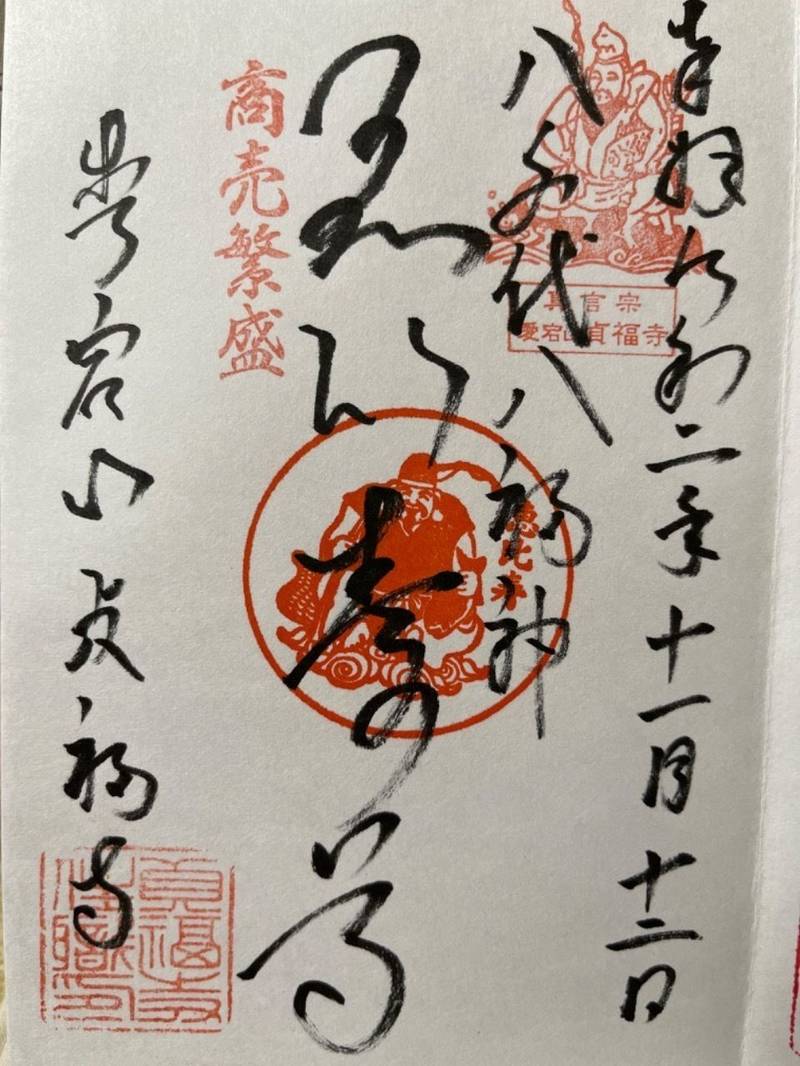 奉拝 令和二年十一月十二日
八千代八福神
愛宕山貞福寺
恵比寿尊
恵比寿
商売繁盛
愛宕山 貞福寺
貞福寺
住職印